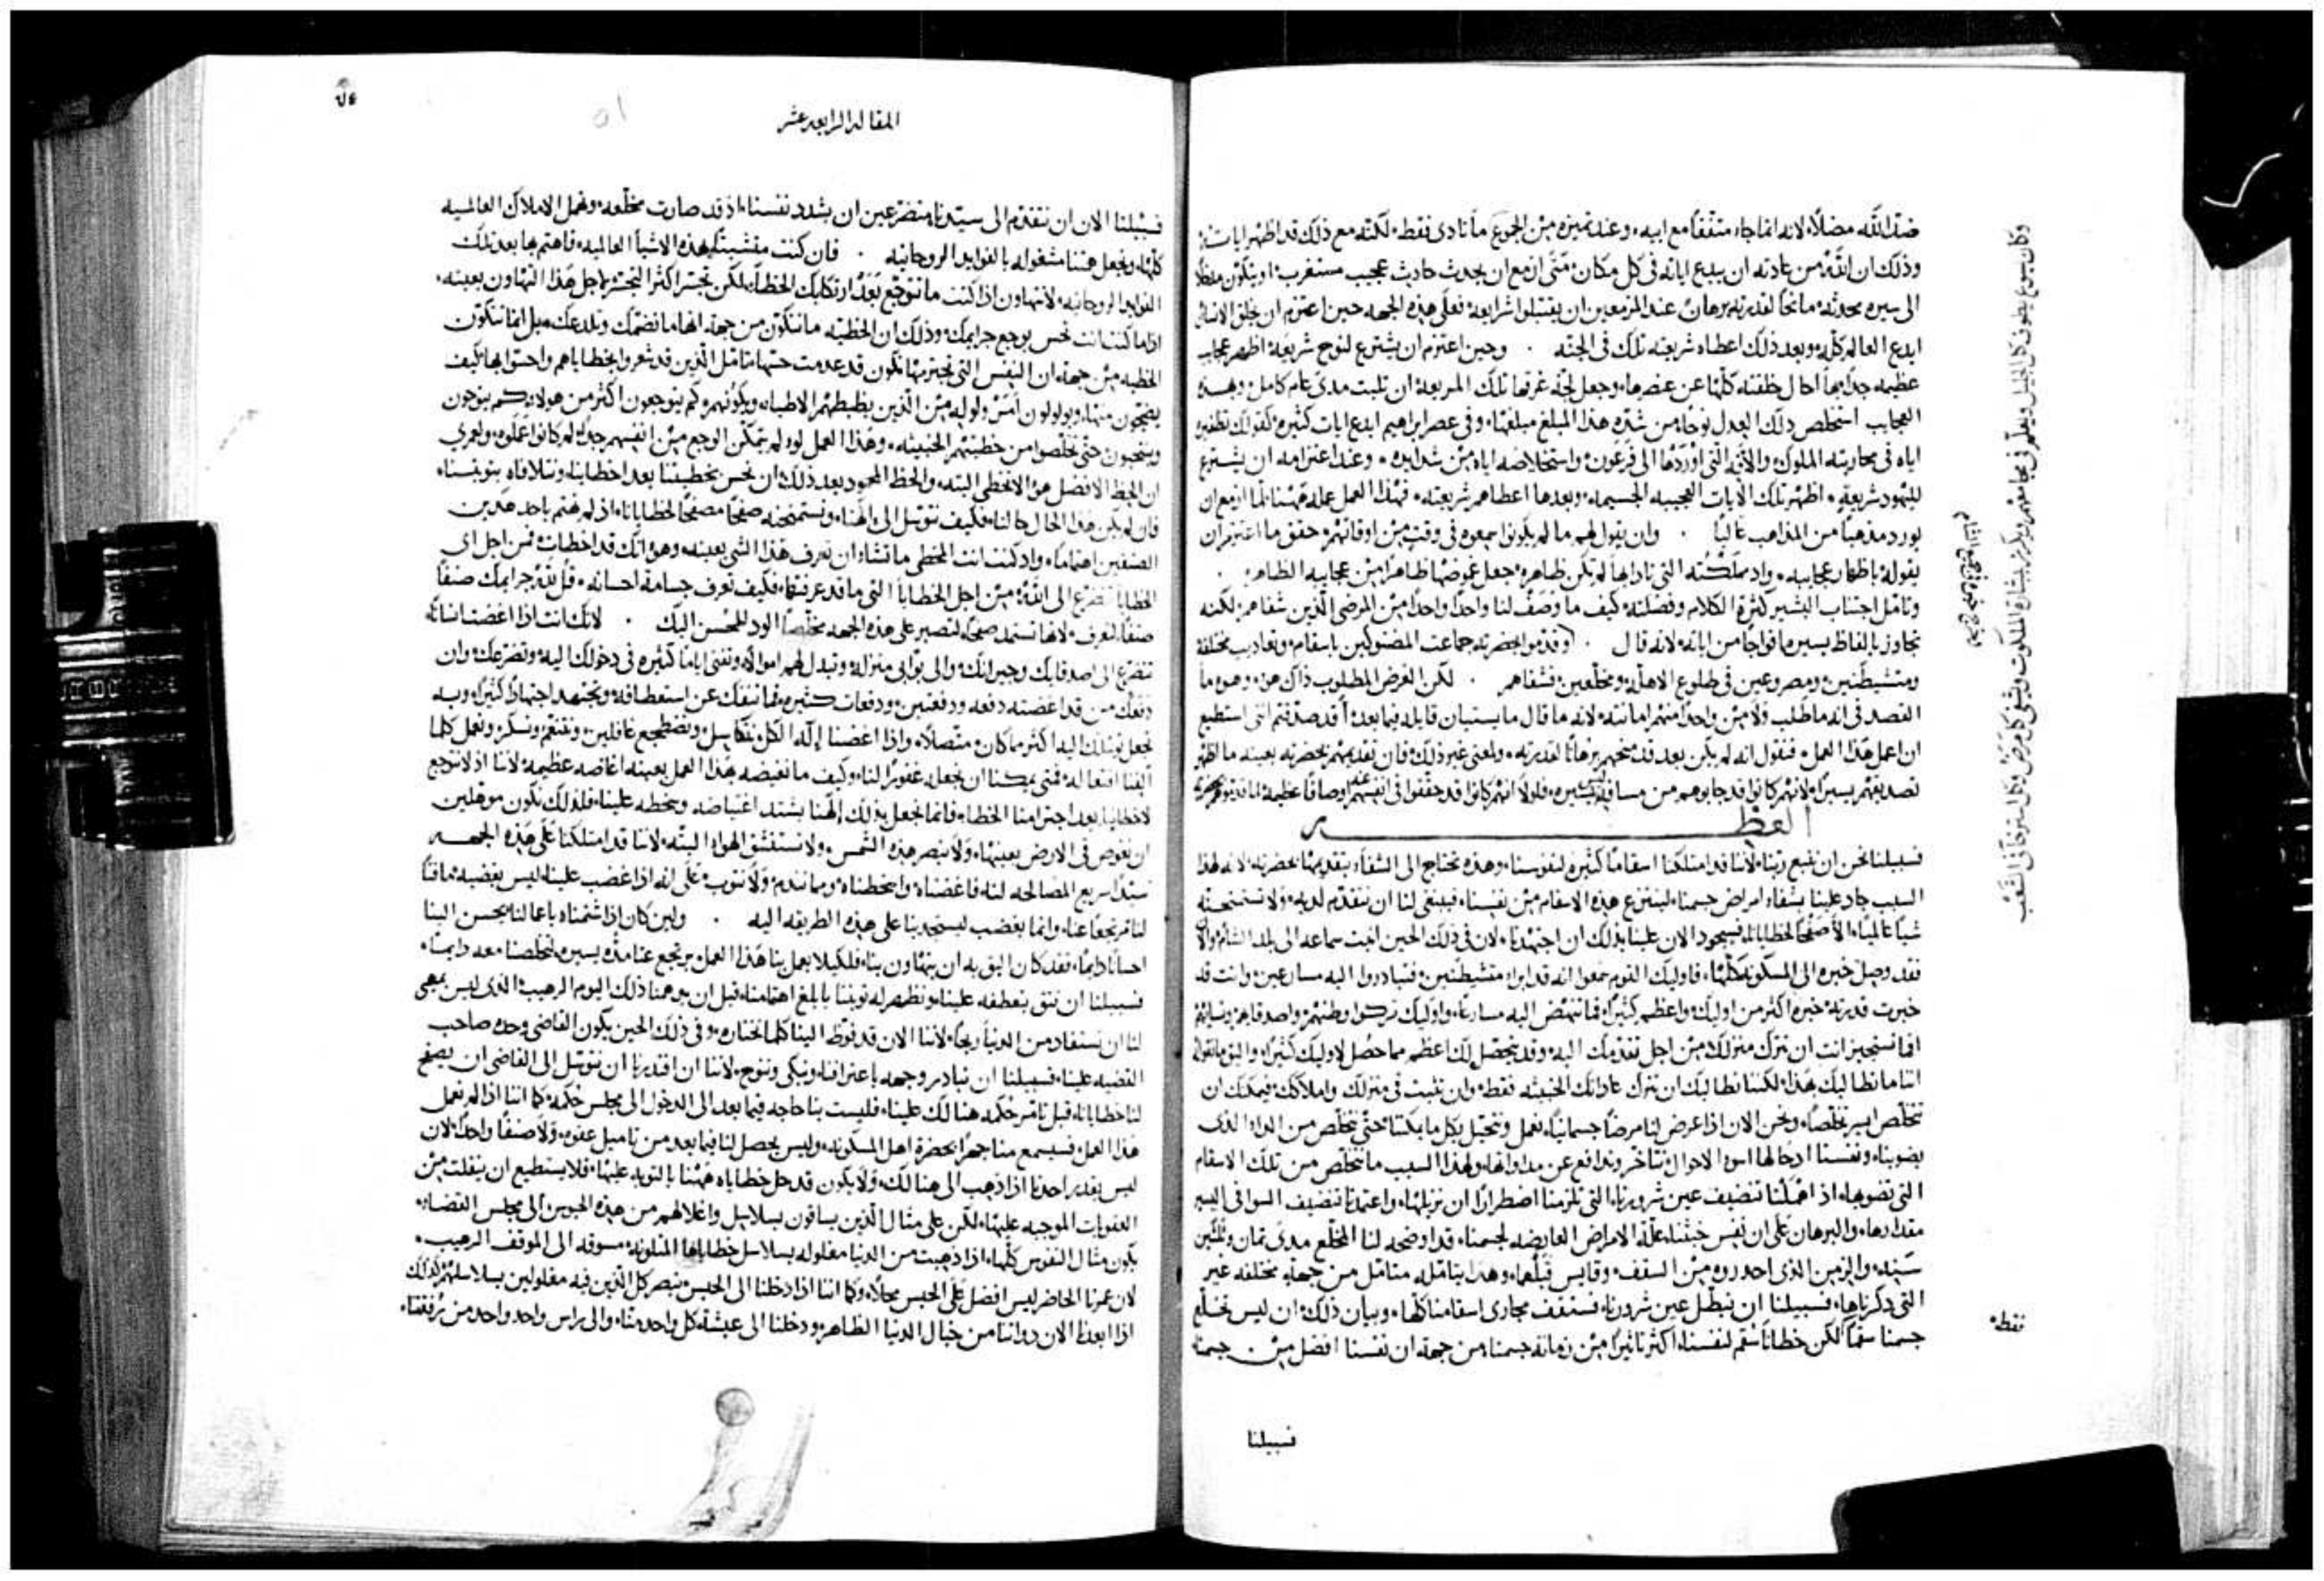 ضدًا لله مضلًا، لانه انما جاء متفقًا مع ابيه، وعند تميزه من الجموع ما نادى فقط، لكنه مع ذلك قد اظهر ايات:
وذلك ان الله من عادته ان يبدع اياته في كل مكان، متى ازمع ان يحدث حادث عجيب مستغرب، او يتكون
الى سيره محدثه، مانحًا لقدرته برهان عند المزمعين ان يقتبلوا شرايعه، فعلى هذه الجهه حين اعتزم ان يخلق الانسان
ابدع العالم كله، وبعد ذلك اعطاه شريعته تلك في الجنه . وحين اعتزم ان يشترع لنوح شريعة اظهر عجايب
عظيمه جدًا بها احال خلقته كلها عن عنصرها، وجعل لجة غرقها تلك المريعة ان تلبث مدى عام كامل، وبهذه
العجايب استخلص ذلك العدل نوحًا من شده هذا المبلغ مبلغها، وفي عصر ابراهيم ابدع ايات كثيره
اياه في محاربته الملوك، والافه التي اوردها الى فرعون، واستخلاصه اياه من شدايده، وعند اعتزامه ان يشترع
لليهود شريعة، اظهر تلك الايات العجيبه الجسيمه، وبعدها اعطاهم شريعته، فهذا العمل عمله ههنا، لما ازمع ان
يورد مذهبًا من المذاهب عاليًا . وان يقول لهم ما لم يكونوا سمعوه في وقت من اوقاتهم، حقق ما اعتزم ان
يقوله باظهار عجايبه، واذ مملكته التي نادا بها لم تكن ظاهره، جعل غموضها ظاهرًا من عجايبه الظاهره .
وتامل اجتناب البشير كثرة الكلام وفضلته، كيف ما وصف لنا واحدًا واحدًا من المرضى الذين شفاهم، لكنه
تجاوز بالفاظ يسيره افواجًا من اياته، لانه قال . وقدموا لحضرته جماعت المضنوكين باسقام، وتعاذيب مختلفه
ومتشيطنين، ومصروعين في طلوع الاهله، ومخلعين، فشفاهم . لكن الغرض المطلوب ذاك هو، وهو ما
القصد في انه ما طلب ولا من واحدًا منهم امانته، لانه ما قال ما يستبان قايله فيما بعد، أقد صدقتم انني استطيع
ان اعمل هذا العمل، فنقول انه لم يكن بعد قد منحهم برهانًا لقدرته، ولمعنى غير ذلك، فان تقديمهم بحضرته بعينه ما اظهر
تصديقهم يسيرًا، لانهم كانوا قد جابوهم من مسافة كثيره، فلولا انهم كانوا قد حققوا في انفسهم عنه اوصافًا عظيمة، لما قدموهم
العظه
فسبيلنا نحن ان نتبع ربنا، لاننا قد امتلكنا اسقامًا كثيره لنفوسنا، وهذه تحتاج الى الشفاء بتقديمها بحضرته، لانه لهذا
السبب جاد علينا بشفاء امراض جسمنا، لينتزع هذه الاسقام من نفسنا، فينبغي لنا ان نتقدم لديه، ولا نستمنحه
شيًا عالميًا، الا صفحًا لخطايانا، فسيجود الان علينا بذلك ان اجتهدنا، لان في ذلك الحين انبت سماعه الى بلد الشام، والان
فقد وصل خبره الى المسكونه كلها، فاوليك القوم سمعوا انه قد ابرا متشيطنين، فتبادروا اليه مسارعين، وانت قد
خبرت قدرته خبره اكثر من اوليك، واعظم كثيرًا، فما تنهض اليه مسارعًا، واوليك تركوا وطنهم واصدقاهم ونسابهم
افما تستجيز انت ان تترك منزلك من اجل تقدمك اليه، وقد يتحصل لك اعظم مما حصل لاوليك كثيرًا، واليق
اننا ما نطالبك بهذا، لكننا نطالبك ان تترك عاداتك الخبيثه فقط، وان تلبث في منزلك واملاكك، فيمكنك ان
تتخلص ايسر تخلصًا، ونحن الان اذا عرض لنا مرضًا جسمانيًا، نعمل ونتحيل بكل ما يمكننا، حتى نتخلص من الداء الذي
يضوينا، ونفسنا اذ حالها اسوا الاحوال نتاخر وندافع عن مداواتها، ولهذا السبب ما نتخلص من تلك الاسقام
التي تضويها، اذ اهملنا تنضيف عين شرورنا، التي تلزمنا اضطرارًا ان نزيلها، واعتمدنا تنضيف السواقي اليسير
مقدارها، والبرهان على ان نفس خبثنا علة الامراض العارضه لجسمنا، قد اوضحه لنا المخلع مدى ثمان وثلثين
سنه، والزمن الذي احدروه من السقف، وقايين قبلها، وهذا يتامله متامل من جهات مختلفه غير
التي ذكرناها، فسبيلنا ان نبطل عين شرورنا، فستقف مجاري اسقامنا كلها، وبيان ذلك ان ليس تخلع
جسمنا سقمًا، لكن خطانا سقم لنفسنا، اكثر تاثيرًا من زمانة جسمنا، من جهة ان نفسنا افضل من جسمنا
فقط،
فسبيلنا
وكان يسوع يطوف كل الجليل ويعلم في مجامعهم ويكرز ببشارة الملكوت ويشفي كل مرض وكل استرخاء في الشعب
المقاله الرابعه عشر
٥١
فسبيلنا الان ان نتقدم الى سيدنا متضرعين ان يشدد نفسنا، اذ قد صارت مخلعه، ونهمل الاملاك العالميه
كلها، ونجعل همنا مشغوله بالفوايد الروحانيه . فان كنت متشبثًا بهذه الاشيا العالميه، فاهتم بها بعد تلك
الفوايد الروحانيه، لا تتهاون اذا كنت ما تتوجع بعد ارتكابك الخطا، لكن تحسر اكثر التحسر، لاجل هذا التهاون بعينه،
اذا ما كنت انت تحس بوجع جرايمك، وذلك ان الخطيه ما تتكون من جهة انها ما تضمك وتلدعك، بل انما تتكون
الخطيه من جهة ان النفس التي تجترمها تكون قد عدمت حسها، تامل الذين قد شعروا بخطاياهم واحسوا بها، كيف
يضجون منها، ويولولون امر ولوله من الذين يظبطهم الاطباء ويكوونهم، وكم يتوجعون اكثر من هولاء، وكم ينوحون
وينتحبون حتى يتخلصوا من خطيتهم الخبيثه، وهذا العمل لو لم يتمكن الوجع من انفسهم جدًا، لم كانوا عملوه، ولعمري
ان الحظ الافضل هو الا نخطي البته، والحظ المحمود بعد ذلك، ان نحس بخطيتنا بعد اخطاينا، ونتلافاه بتوبتنا،
فان لم يكن هذا الحال حالنا، فكيف نتوسل الى الهنا، ونستمنحه صفحًا لخطايانا، اذ لم نهتم باحد هذين
الصنفين اهتمامًا، واذ كنت انت المخطي ما تشاء ان تعرف هذا الشي بعينه، وهو انك قد اخطات، فمن اجل اي
الخطايا تتضرع الى الله، من اجل الخطايا التي ما قد عرفتها، فكيف تعرف جسامة احسانه، قل لله جرايمك صنفًا
صنفًا، لتعرف لانها تستمد صفحًا، لتصير على هذه الجهه مخلصًا الود للمحسن اليك . لانك انت اذا اغضبت انسانًا،
تتضرع الى اصدقايك وجيرانك، والى بوابي منزله، وتبدل لهم اموالًا، وتفني ايامًا كثيره في دخولك اليه، وتضرعك، وان
دفعك من قد اغضبته دفعه ودفعتين ودفعات كثيره، فما تنفك عن استعطافه، وتجتهد اجتهادًا كثيرًا، وبه
تجعل توسلك اليه اكثر مما كان متصلًا، واذا اغضبنا إله الكل نتكاسل، ونضطجع غافلين، ونتنعم ونسكر، ونعمل كلما
الفنا افعاله، فمتى يمكننا ان نجعله غفورًا لنا، وكيف ما نغيضه بهذا العمل بعينه اغاضه عظيمه، لاننا اذ لا نتوجع
لاخطاينا، بعد اجترامنا الخطاء، فانما نجعل بذلك إلهنا يشتد اغتياضه وسخطه علينا، فلذلك نكون موهلين
ان نغوص في الارض بعينها، ولا نبصر هذه الشمس، ولا نستنشق الهواء البته، لاننا قد امتلكنا على هذه الجهه
سيدًا سريع المصالحه لنا، فاغضبناه واسخطناه، وما نندم ولا نتوب، على انه اذا غضب علينا، ليس يغضبه ماقتًا
لنا مرتجعًا عنا، وانما يغضب ليستجدبنا على هذه الطريقه اليه . ولين كان اذا شتمناه باعمالنا يحسن الينا
احسانًا دايمًا، فقد كان اليق به ان يتهاون بنا، فلكيلا يعمل بنا هذا العمل يرتجع عنا مده يسيره، ليخلصنا معه دايمًا،
فسبيلنا ان نثق بتعطفه علينا، ونظهر له توبتنا بابلغ اهتمامنا، قبل ان يدهمنا ذلك اليوم الرهيب، الذي ليس يمكن
لنا ان نستفاد من الدنيا ربحًا، لاننا الان قد فوض الينا كلما نختاره، وفي ذلك الحين يكون القاضي وحده صاحب
القضيه علينا، فسبيلنا ان نبادر وجهه باعترافنا، ونبكي وننوح، لاننا ان اقتدرنا ان نتوسل الى القاضي ان يصفح
لنا خطايانا، قبل تامر حكمه هنالك علينا، فليست بنا حاجه فيما بعد الى الدخول الى مجلس حكمه، كما اننا اذا لم نعمل
هذا العمل، فسيسمع منا جهرًا بحضرة اهل المسكونه، وليس يحصل لنا فيما بعد من تاميل عفوه ولا صنفًا واحدًا، لان
ليس يقدر احدنا اذا ذهب الى هنالك، ولا يكون قد حل خطاياه ههنا بالتوبه عليها، فلا يستطيع ان ينفلت من
العقوبات الموجبه عليها، لكن على مثال الذين يساقون بسلاسل واغلالهم من هذه الحبوس الى مجلس القضاء،
يكون مثال النفوس كلها، اذا ذهبت من الدنيا مغلوله بسلاسل خطاياها المتلونه، مسوقه الى الموقف الرهيب،
لان عمرنا الحاضر ليس افضل على الحبس محلًا، وكما اننا اذا دخلنا الى الحبس نبصر كل الذين فيه مغلولين بسلاسلهم، كذلك
اذا ابعدنا الان ذواتنا من خيال الدنيا الظاهره، ودخلنا الى عيشة كل واحد منا، والى راس واحد واحد من رفقتنا،